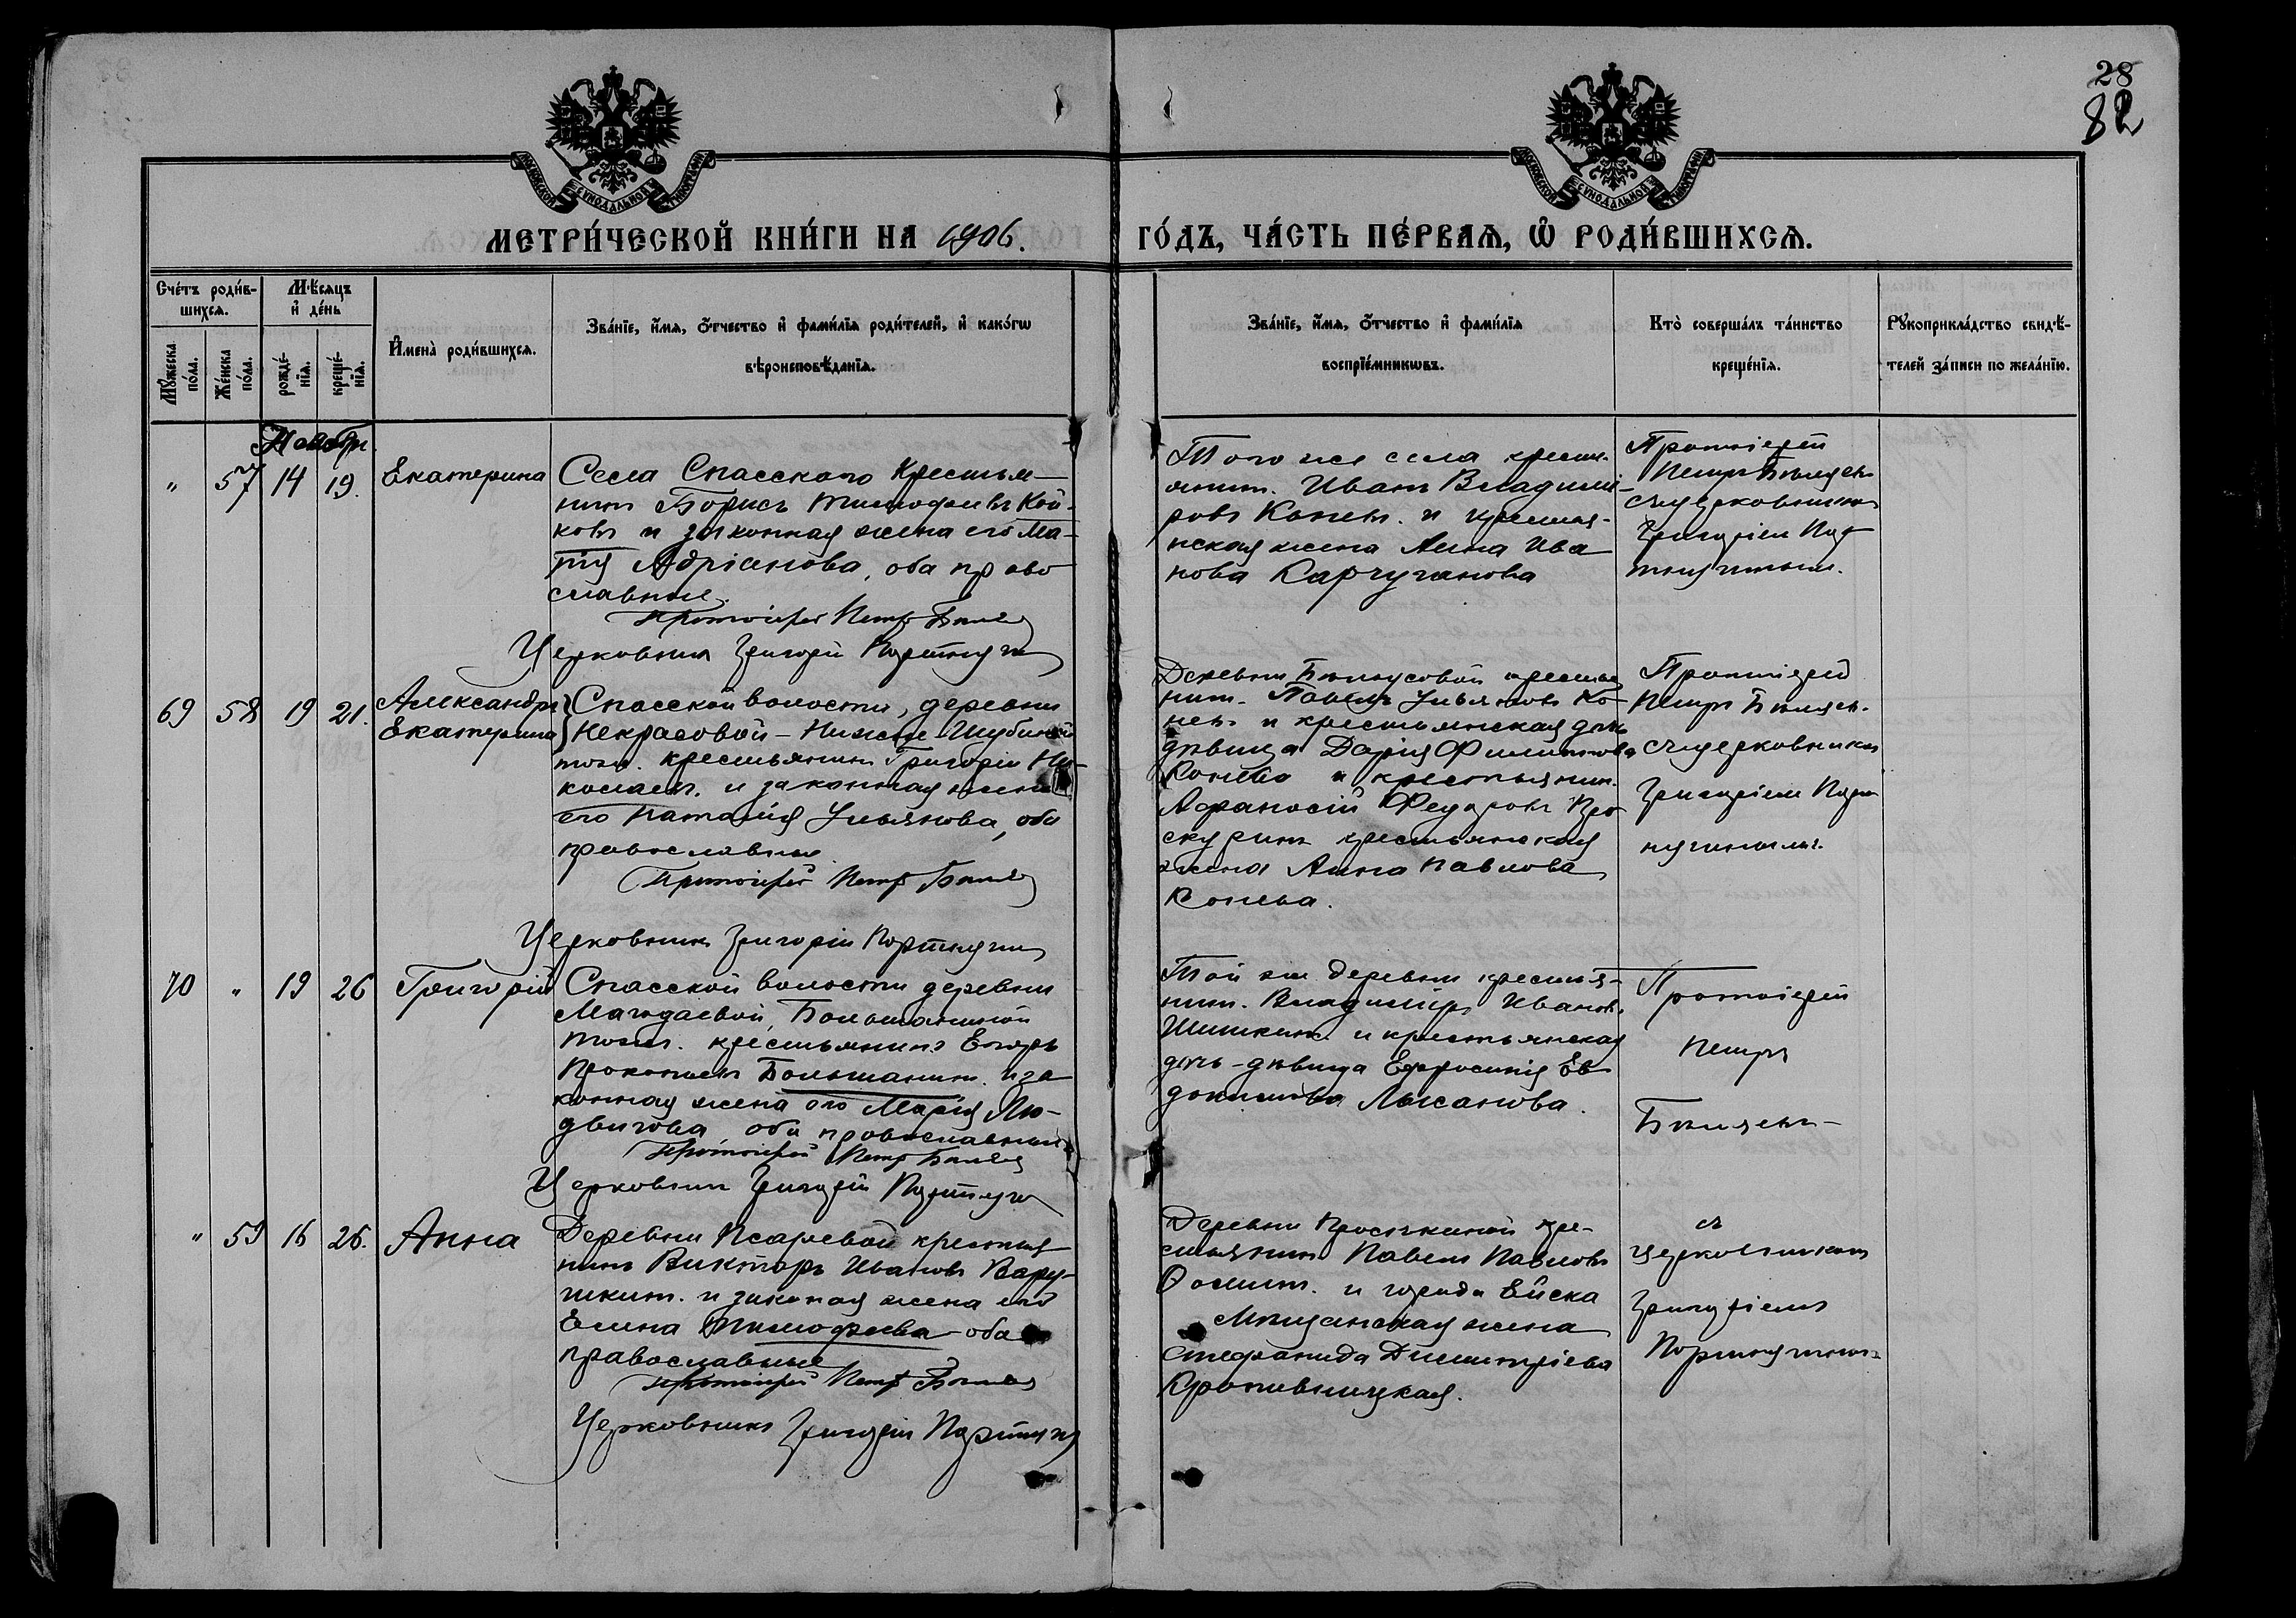 28
82
МОСКОВСКОЙ СѴНОДАЛЬНОЙ ТИПОГРАФІИ
МОСКОВСКОЙ СѴНОДАЛЬНОЙ ТИПОГРАФІИ
МЕТРИ́ЧЕСКОЙ КНИ́ГИ НА 1906.
ГО́ДЪ, ЧА́СТЬ ПЕ́РВАѦ, Ѡ҆ РОДИ́ВШИХСѦ.
Сче́тъ роди́в-
шихсѧ.
Мꙋ́жеска
по́ла.
Же́нска
по́ла.
Мѣ́сѧцъ
и҆ де́нь
рожде́-
нїѧ.
креще́-
нїѧ.
И҆мена̀ роди́вшихсѧ.
Зва́нїе, и҆́мѧ, ѻ҆́тчество и҆ фами́лїѧ роди́телей, и҆ како́гѡ
вѣроисповѣ́данїѧ.
Зва́нїе, и҆́мѧ, ѻ҆́тчество и҆ фами́лїѧ
воспрїе́мникѡвъ.
Кто̀ соверша́лъ та́инство
креще́нїѧ.
Рꙋкоприкла́дство свидѣ́-
телей за́писи по жела́нїю.
Ноябрь.
" 57 14 19. Екатерина
Села Спасскаго Крестья-
нинъ Борисъ Тимофеевъ Кой-
ковъ и законная жена его Ма-
рія Адріанова, оба право
славные.
Протоіерей Петръ
Церковникъ Григорій Портнягин
Того же села крестья-
янинъ. Иванъ Владимі-
ровъ Коневъ. и крестья-
нская жена Анна Ива
нова Карчуганова
Протоіерей
Петръ
съ церковникомъ
Григоріемъ Порт
нягинымъ.
69 58 19 21. Александръ
Екатерина
Спасской волости, деревни
Некрасовой - Нижне-Шубиной
тожъ. крестьянинъ Григорій Ни-
колаевъ. и законная жена
его Наталія Ульянова, оба
православные
Протоіерей Петръ
Церковникъ Григорій Портнягин
Деревни крестья
нинъ. Павелъ Ульяновъ Ко-
невъ и крестьянская дочь
дѣвица Дарія Филиппова
Конева и крестьянин.
Афанасій Федоровъ Про
скуринъ крестьянская
жена Анна Павлова
Конева.
Протоіерей
Петръ
съ церковникомъ
Григоріемъ Порт
нягинымъ.
70 " 19 26 Григорій
Спасской волости деревни
Магодаевой, Большаниной
тожъ. крестьянинъ Егоръ
Прокопьевъ Большанинъ. и за
конная жена его Марія Лю-
двигова оба православные
Протоіерей Петръ
Церковник Григорій Портнягин
Той же деревни крестья-
нинъ. Владиміръ Ивановъ.
Шишкинъ и крестьянская
дочь-дѣвица Ефросинія Ев
докимова Лысанова.
Протоіерей
Петръ
" 59 16 26. Анна
Деревни Псаревой крестья
нинъ Викторъ Ивановъ Вару-
шкин. и законая жена его
Елена Тимофеева оба
православные
Протоіерей Петръ
Церковникъ Григорій Портнягин
Деревни Проскиной кре-
стьянинъ Павелъ Павловъ
Фоминъ. и города Ейска
Мѣщанская жена
Стефанида Димитріева
Кропивницкая.
съ
церковникомъ
Григоріемъ
Портнягинымъ